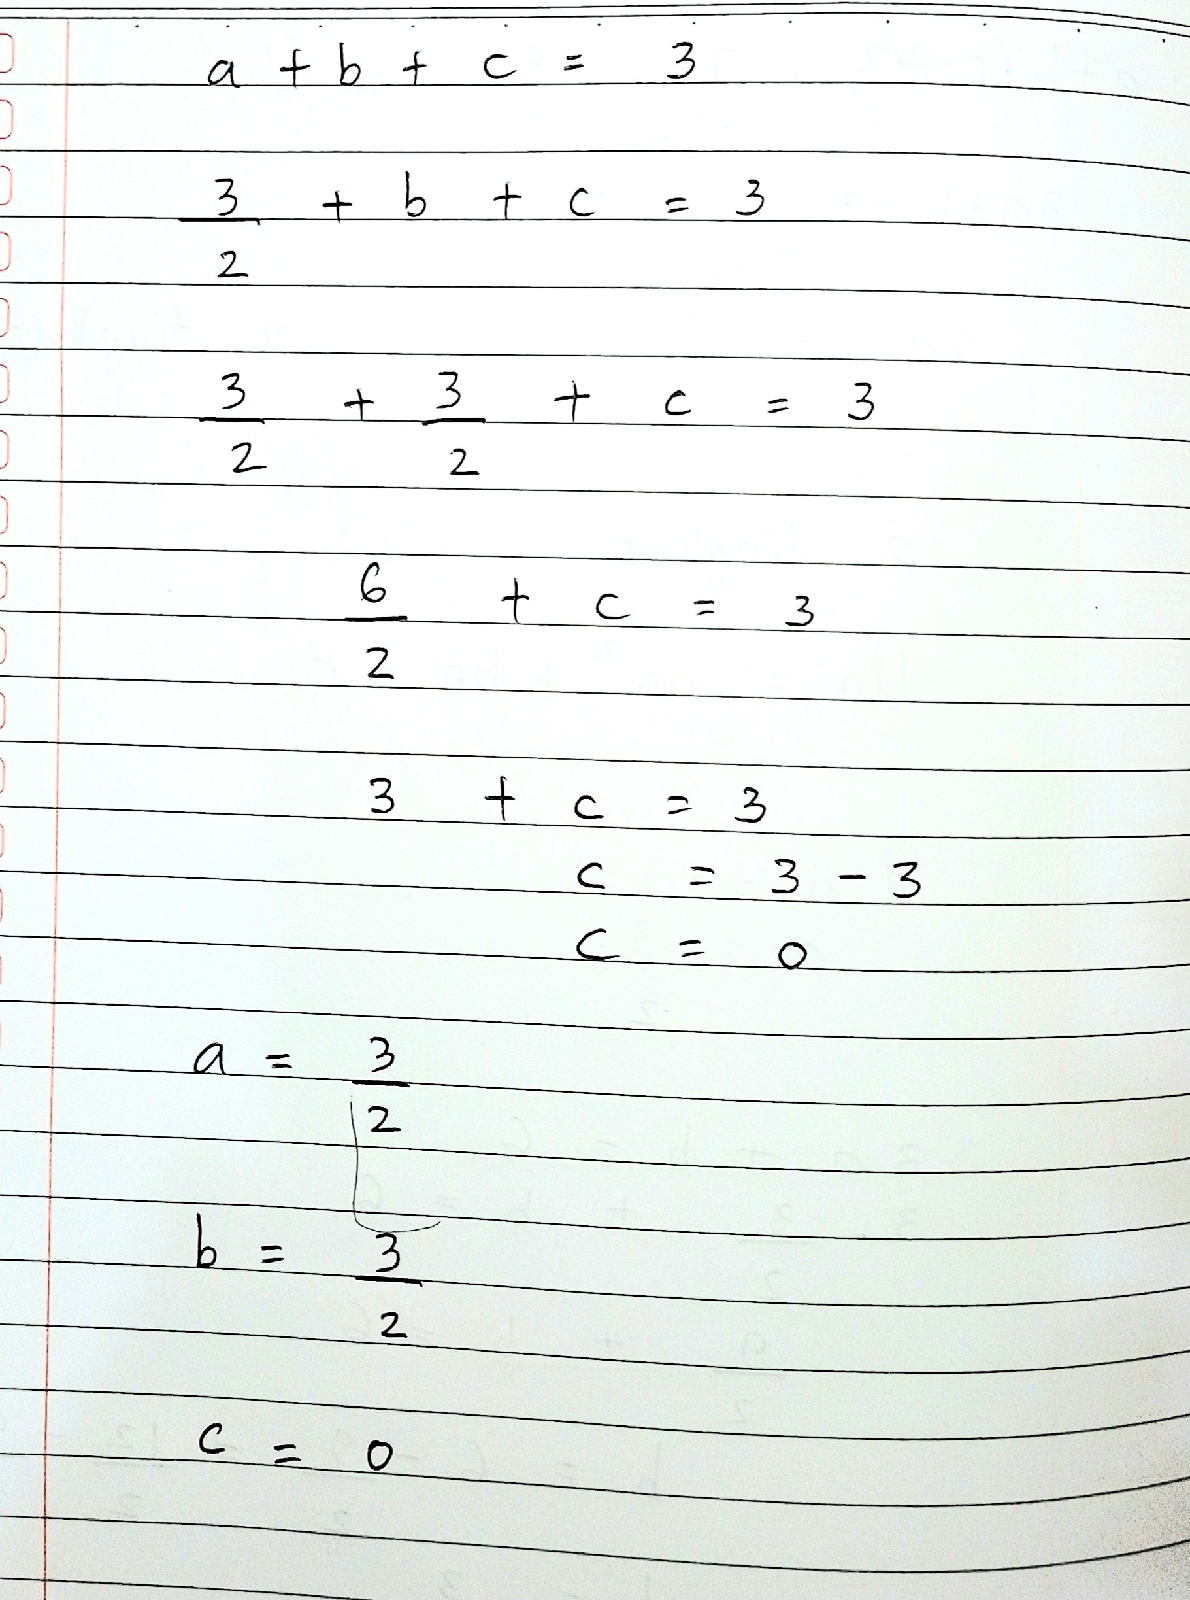 a + b + c = 3
3/2 + b + c = 3
3/2 + 3/2 + c = 3
6/2 + c = 3
3 + c = 3
c = 3 - 3
c = 0
a = 3/2
b = 3/2
c = 0